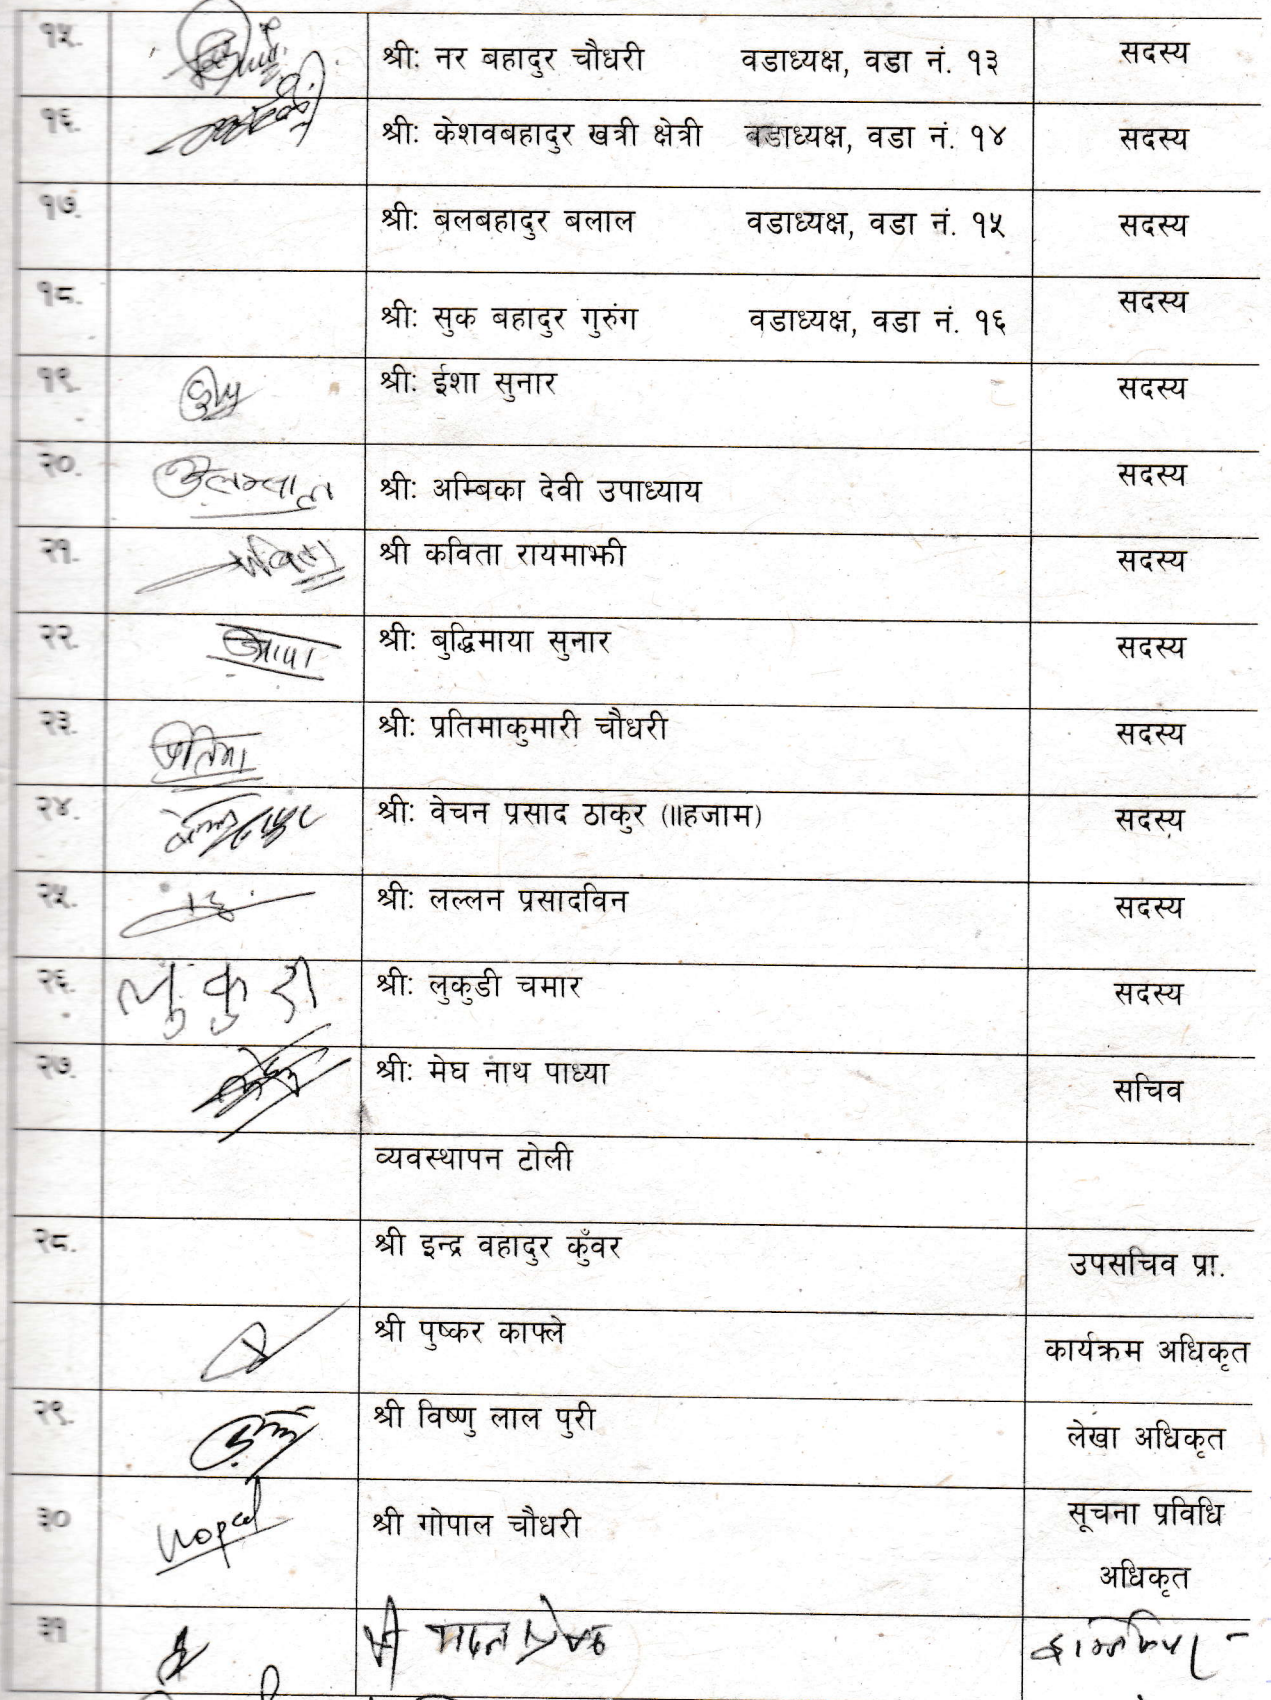 १५. श्री: नर बहादुर चौधरी वडाध्यक्ष, वडा नं. १३ सदस्य
१६. श्री: केशवबहादुर खत्री क्षेत्री वडाध्यक्ष, वडा नं. १४ सदस्य
१७. श्री: बलबहादुर बलाल वडाध्यक्ष, वडा नं. १५ सदस्य
१८. श्री: सुक बहादुर गुरुंग वडाध्यक्ष, वडा नं. १६ सदस्य
१९. श्री: ईशा सुनार सदस्य
२०. श्री: अम्बिका देवी उपाध्याय सदस्य
२१. श्री कविता रायमाझी सदस्य
२२. श्री: बुद्धिमाया सुनार सदस्य
२३. प्रतिमा श्री: प्रतिमाकुमारी चौधरी सदस्य
२४. श्री: वेचन प्रसाद ठाकुर (॥हजाम) सदस्य
२५. श्री: लल्लन प्रसादविन सदस्य
२६. लुकुरी श्री: लुकुडी चमार सदस्य
२७. श्री: मेघ नाथ पाध्या सचिव
व्यवस्थापन टोली
२८. श्री इन्द्र वहादुर कुँवर उपसचिव प्रा.
श्री पुष्कर काफ्ले कार्यक्रम अधिकृत
२९. श्री विष्णु लाल पुरी लेखा अधिकृत
३० श्री गोपाल चौधरी सूचना प्रविधि
अधिकृत
३१ श्री